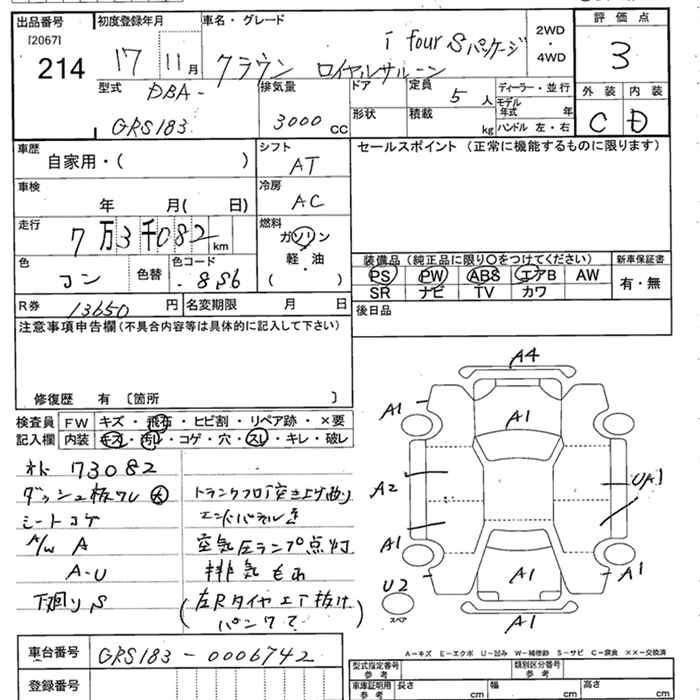 出品番号
[2067]
214
初度登録年月
17 11月
車名・グレード
クラウン ロイヤルサルーン
i four Sパッケージ
2WD
・
4WD
評価点
3
外装 内装
C D
型式
DBA-
GRS183
排気量
3000 cc
ドア
形状
定員
5人
積載
kg
ディーラー・並行
モデル年式 年
ハンドル 左・右
車歴
自家用・( )
車検
年 月( 日)
走行
7万3千082 km
色
コン
色替
色コード
8S6
R券
13650 円
名変期限 月 日
シフト
AT
冷房
AC
燃料
ガソリン
・
軽油
・
( )
セールスポイント (正常に機能するものに限ります)
装備品 (純正品に限り○をつけてください)
PS PW ABS エアB AW
SR ナビ TV カワ
新車保証書
有・無
後日品
注意事項申告欄(不具合内容等は具体的に記入して下さい)
修復歴 有 [箇所 ]
検査員
記入欄
FW キズ・飛石・ヒビ割・リペア跡・×要
内装 キズ・汚レ・コゲ・穴・スレ・キレ・破レ
オド 73082
ダッシュ板ワレ 大
シートコゲ
A/W A
A-U
下廻りS
トランクフロア突き上げ曲り
エンドパネルキ
空気圧ランプ点灯
排気もれ
(左Rタイヤエア抜け
パンクて
A4
A1
A1
A2
UA1
A1
U2
A1
A1
A1
スペア
A-キズ E-エクボ U-凹み W-補修跡 S-サビ C-腐食 ××-交換済
車台番号
GRS183-0006742
登録番号
型式指定番号
参考
類別区分番号
参考
車庫証明用
参考
長さ cm
幅 cm
高さ cm